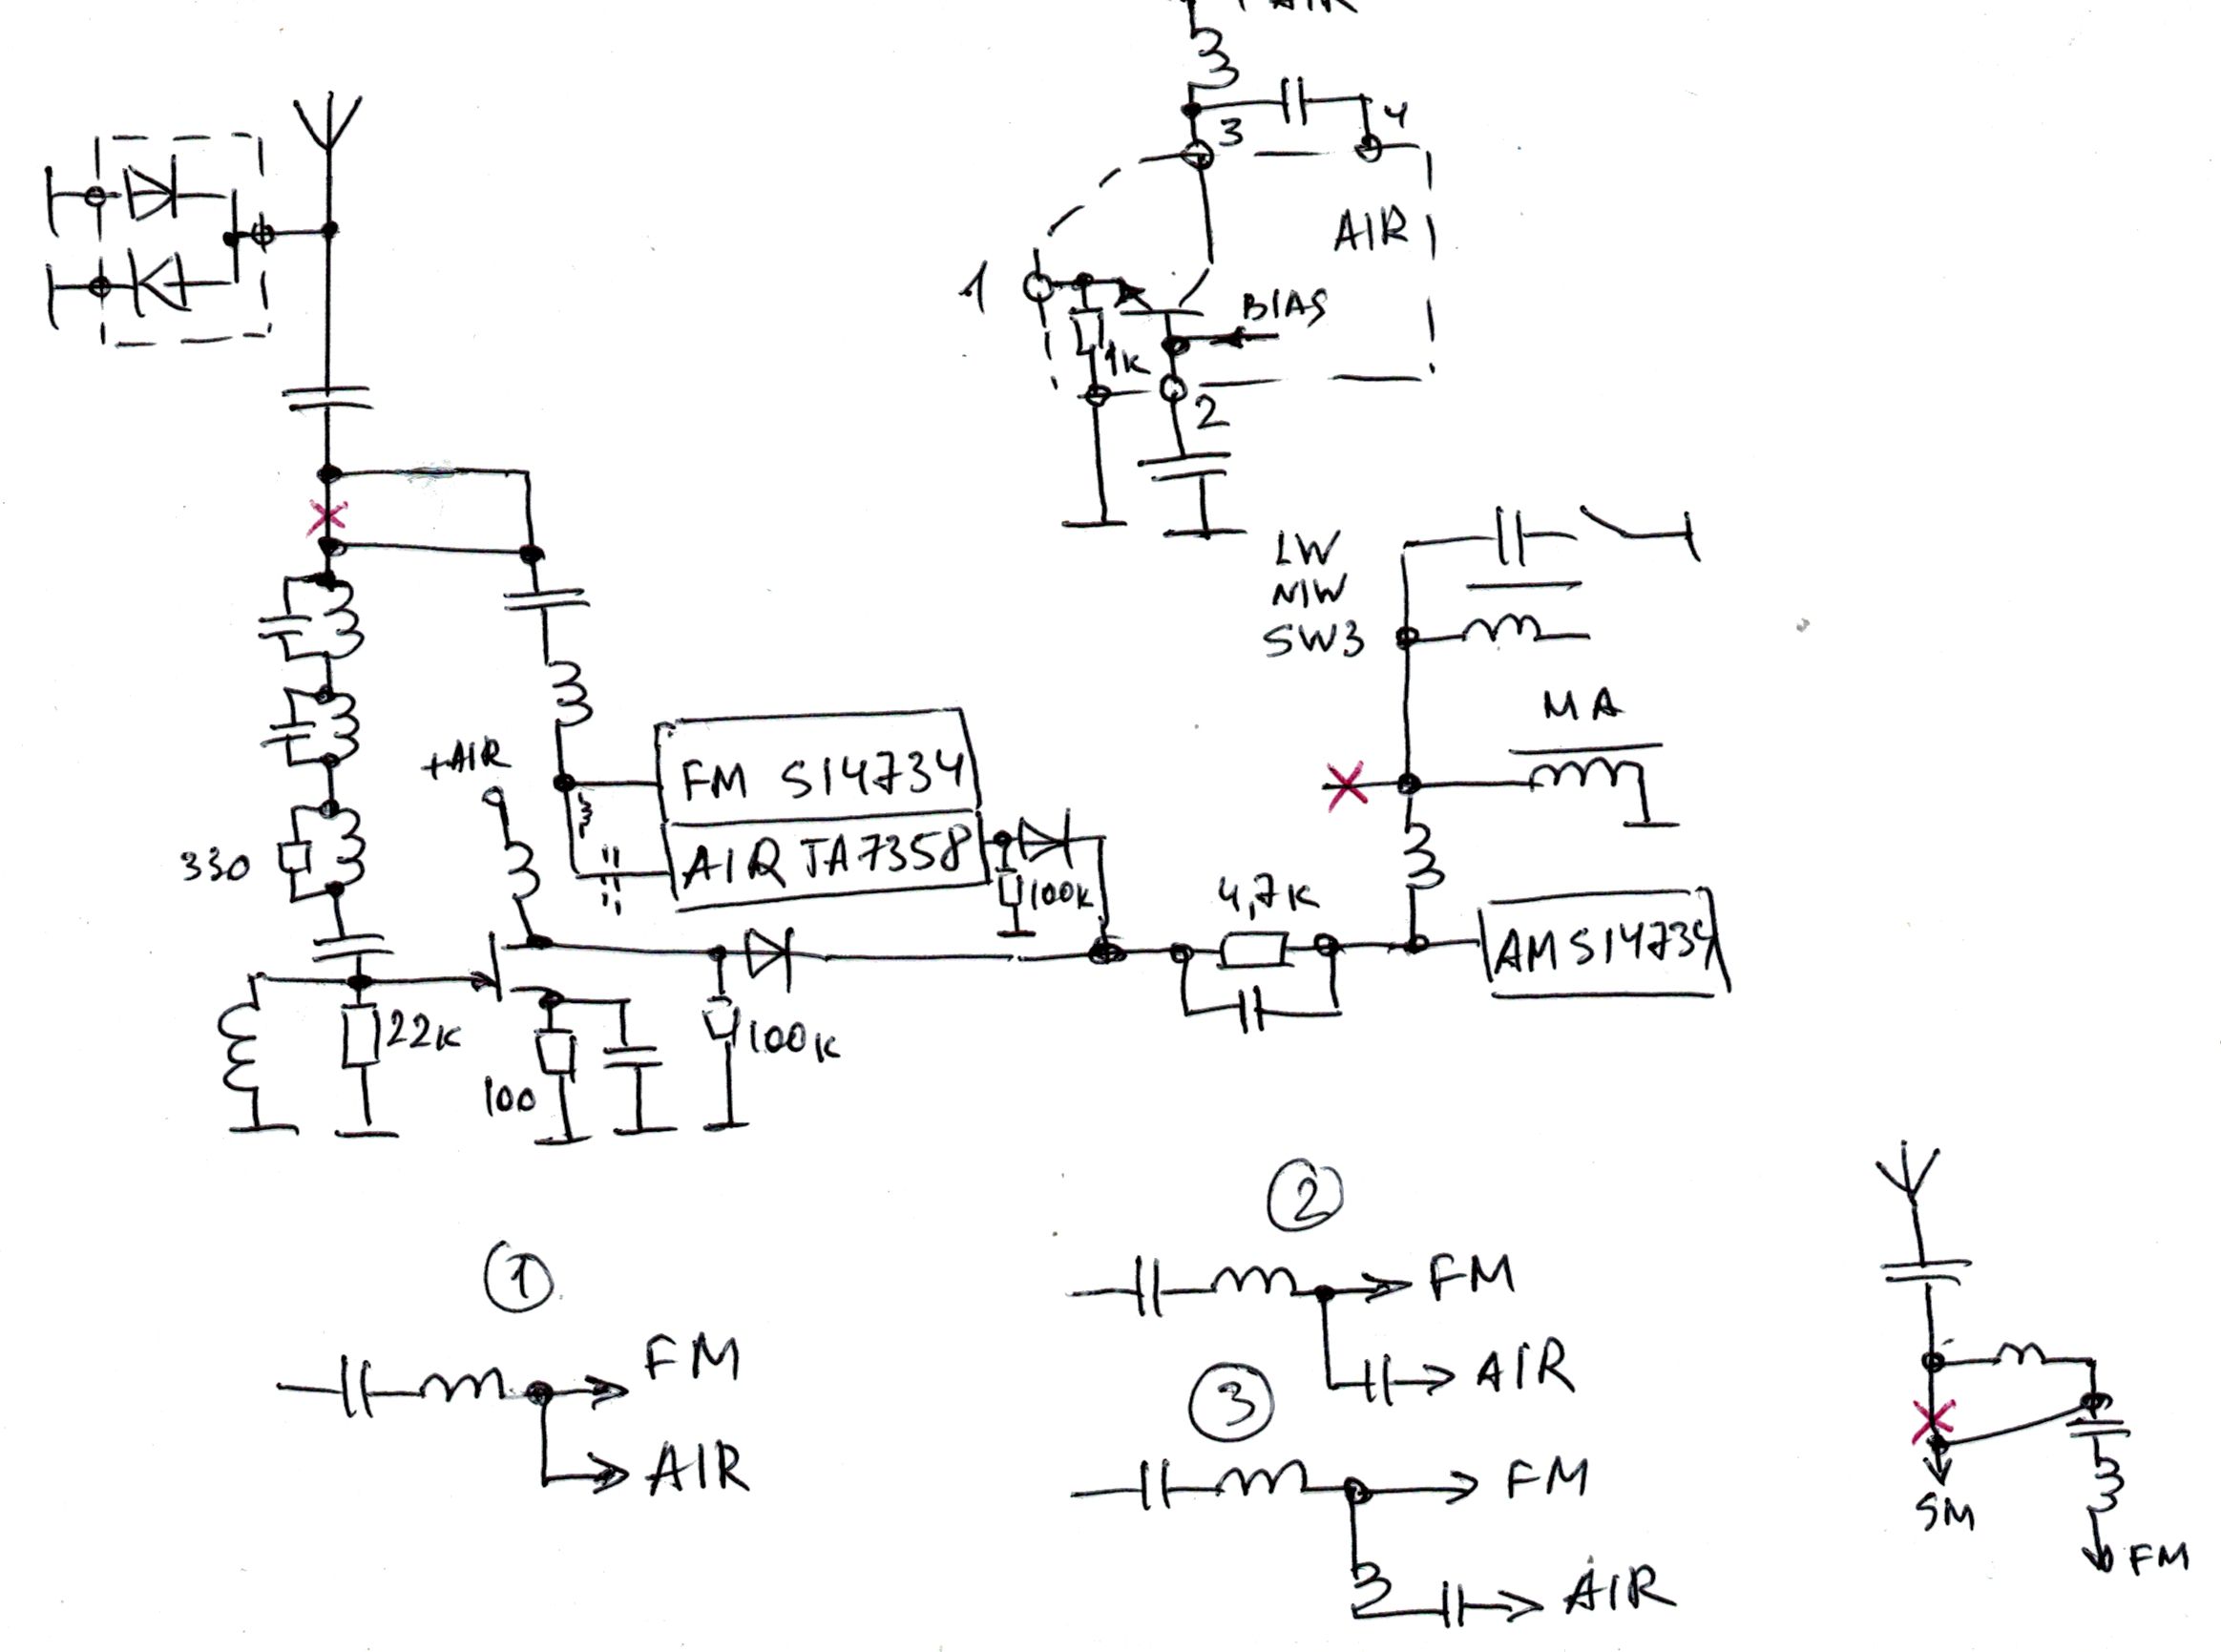 3
4
AIR
1
BIAS
1K
2
LW
MW
SW3
MA
+AIR
FM SI4734
AIR TA7358
330
100K
4,7K
AM SI4734
22K
100
100K
1
FM
AIR
2
FM
AIR
3
FM
AIR
SM
FM